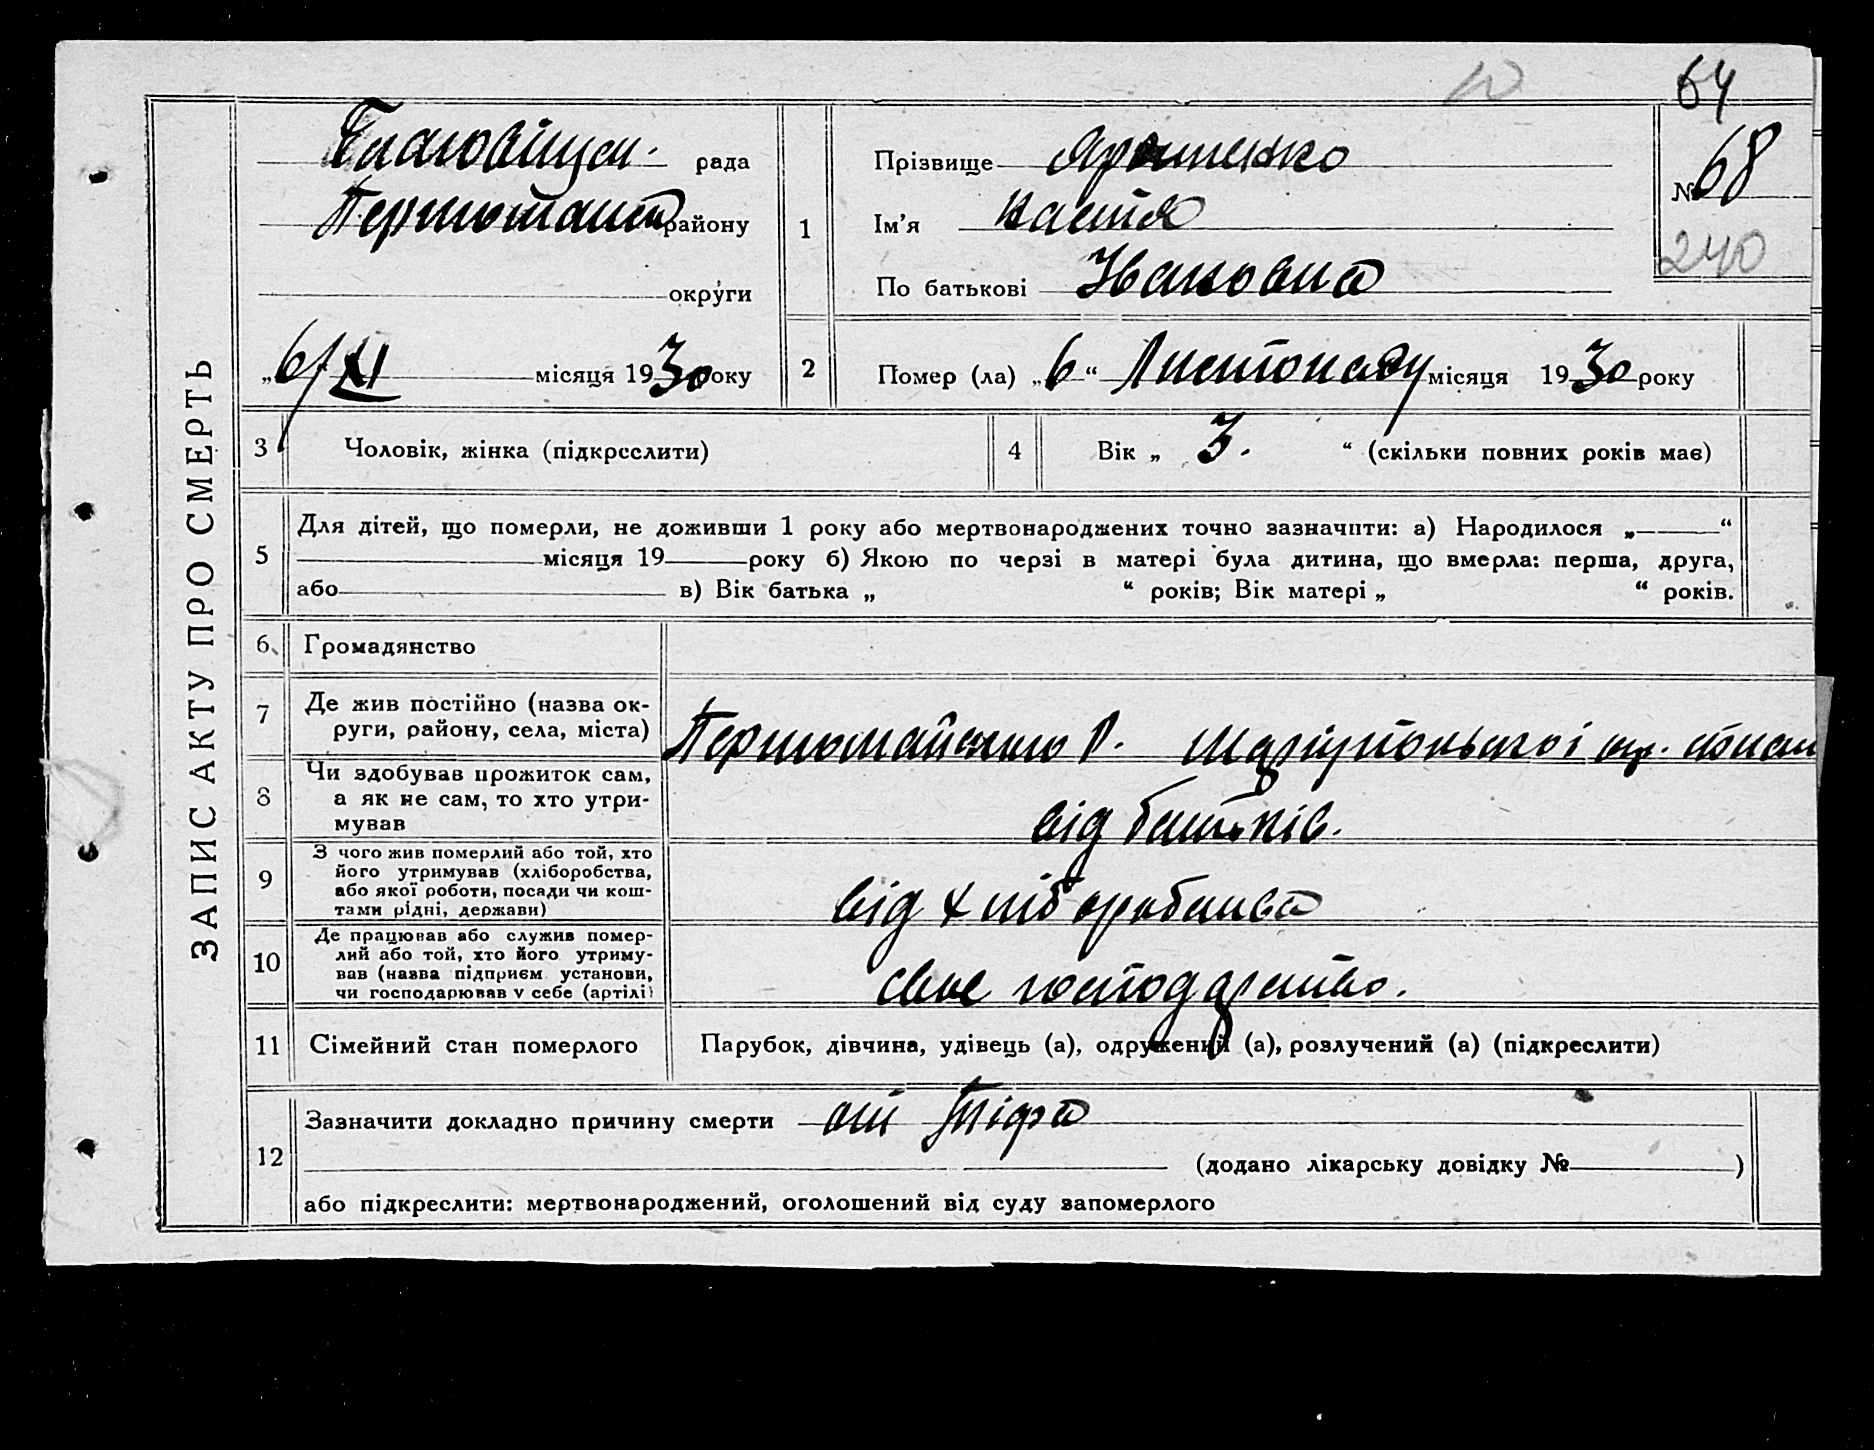 64
ЗАПИС АКТУ ПРО СМЕРТЬ
Благовіщен. рада
району
округи
„6/XI місяця 1930 року
1
Прізвище
Ім'я Настя
По батькові Ивановна
№ 68
240
2 Помер (ла) „6“ Листопаду місяця 1930 року
3 Чоловік, жінка (підкреслити)
4 Вік „ 3. “ (скільки повних років має)
5 Для дітей, що померли, не доживши 1 року або мертвонароджених точно зазначити: а) Народилося „ “
місяця 19 року б) Якою по черзі в матері була дитина, що вмерла: перша, друга,
або в) Вік батька „ “ років; Вік матері „ “ років.
6 Громадянство
7 Де жив постійно (назва ок-
руги, району, села, міста)
Першотравневого Р.
8 Чи здобував прожиток сам,
а як не сам, то хто утри-
мував
від батьків.
9 З чого жив померлий або той, хто
його утримував (хліборобства,
або якої роботи, посади чи кош-
тами рідні, держави)
від хліборобства
10 Де працював або служив помер-
лий або той, хто його утриму-
вав (назва підприєм установи,
чи господарював у себе (артілі)
своє господарство.
11 Сімейний стан померлого
Парубок, дівчина, удівець (а), одружений (а), розлучений (а) (підкреслити)
12 Зазначити докладно причину смерти от Тіфа
(додано лікарську довідку № )
або підкреслити: мертвонароджений, оголошений від суду запомерлого